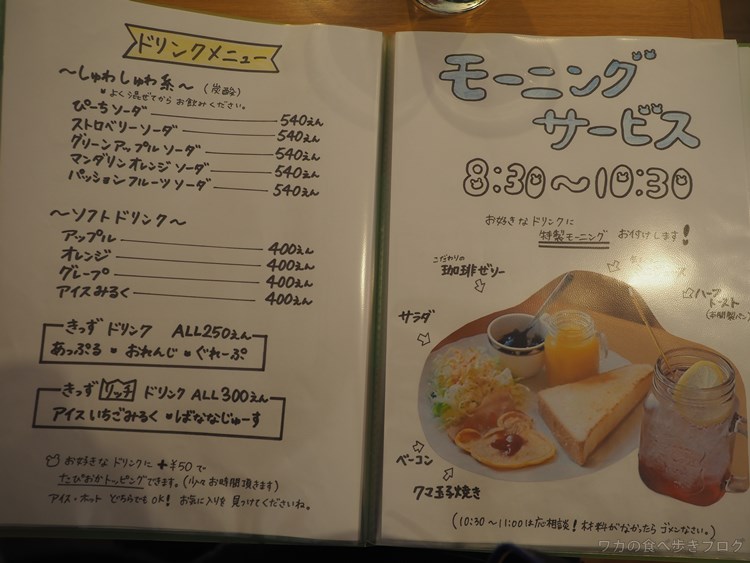 ドリンクメニュー
～しゅわしゅわ系～(炭酸)
よく混ぜてからお飲みください。
ぴーちソーダ 540えん
ストロベリーソーダ 540えん
グリーンアップルソーダ 540えん
マンダリンオレンジソーダ 540えん
パッションフルーツソーダ 540えん
～ソフトドリンク～
アップル 400えん
オレンジ 400えん
グレープ 400えん
アイスみるく 400えん
きっずドリンク ALL250えん
あっぷる おれんじ ぐれーぷ
きっずリッチドリンク ALL300えん
アイスいちごみるく ばななじゅーす
お好きなドリンクに+¥50で
たぴおかトッピングできます。(少々お時間頂きます)
アイス・ホットどちらでもOK! お気に入りを見つけてくださいね。
モーニング
サービス
8:30～10:30
お好きなドリンクに
特製モーニング お付けします!
こだわりの
珈琲ゼリー
ハーフ
トースト
サラダ
ベーコン
クマ玉子焼き
(10:30～11:00は応相談!材料がなかったらゴメンなさい。)
ワカの食べ歩きブログ